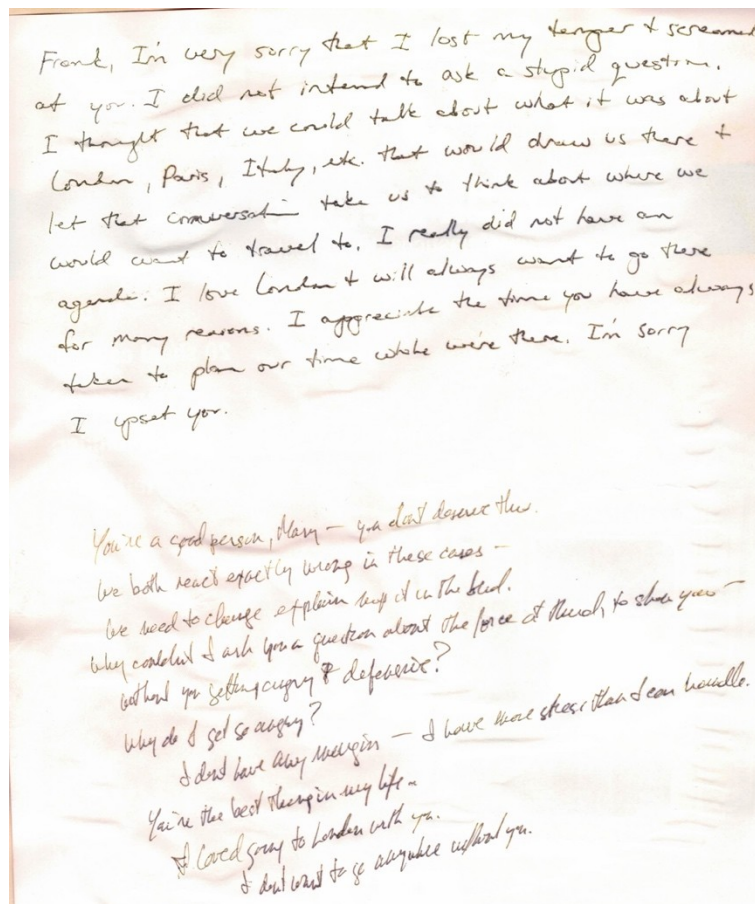 Frank, I'm very sorry that I lost my temper + screamed
at you. I did not intend to ask a stupid question.
I thought that we could talk about what it was about
London, Paris, Italy, etc. that would draw us there +
let that conversation take us to think about where we
would want to travel to. I really did not have an
agenda. I love London + will always want to go there
for many reasons. I appreciate the time you have always
taken to plan our time while we're there. I'm sorry
I upset you.
You're a good person, Mary — you don't deserve this.
We both react exactly wrong in these cases —
We need to change explain nip it in the bud.
Why couldn't I ask you a question about the force at to show you —
without you getting angry & defensive?
Why do I get so angry?
I don't have any margin — I have more stress than I can handle.
You're the best thing in my life —
I loved going to London with you.
I don't want to go anywhere without you.